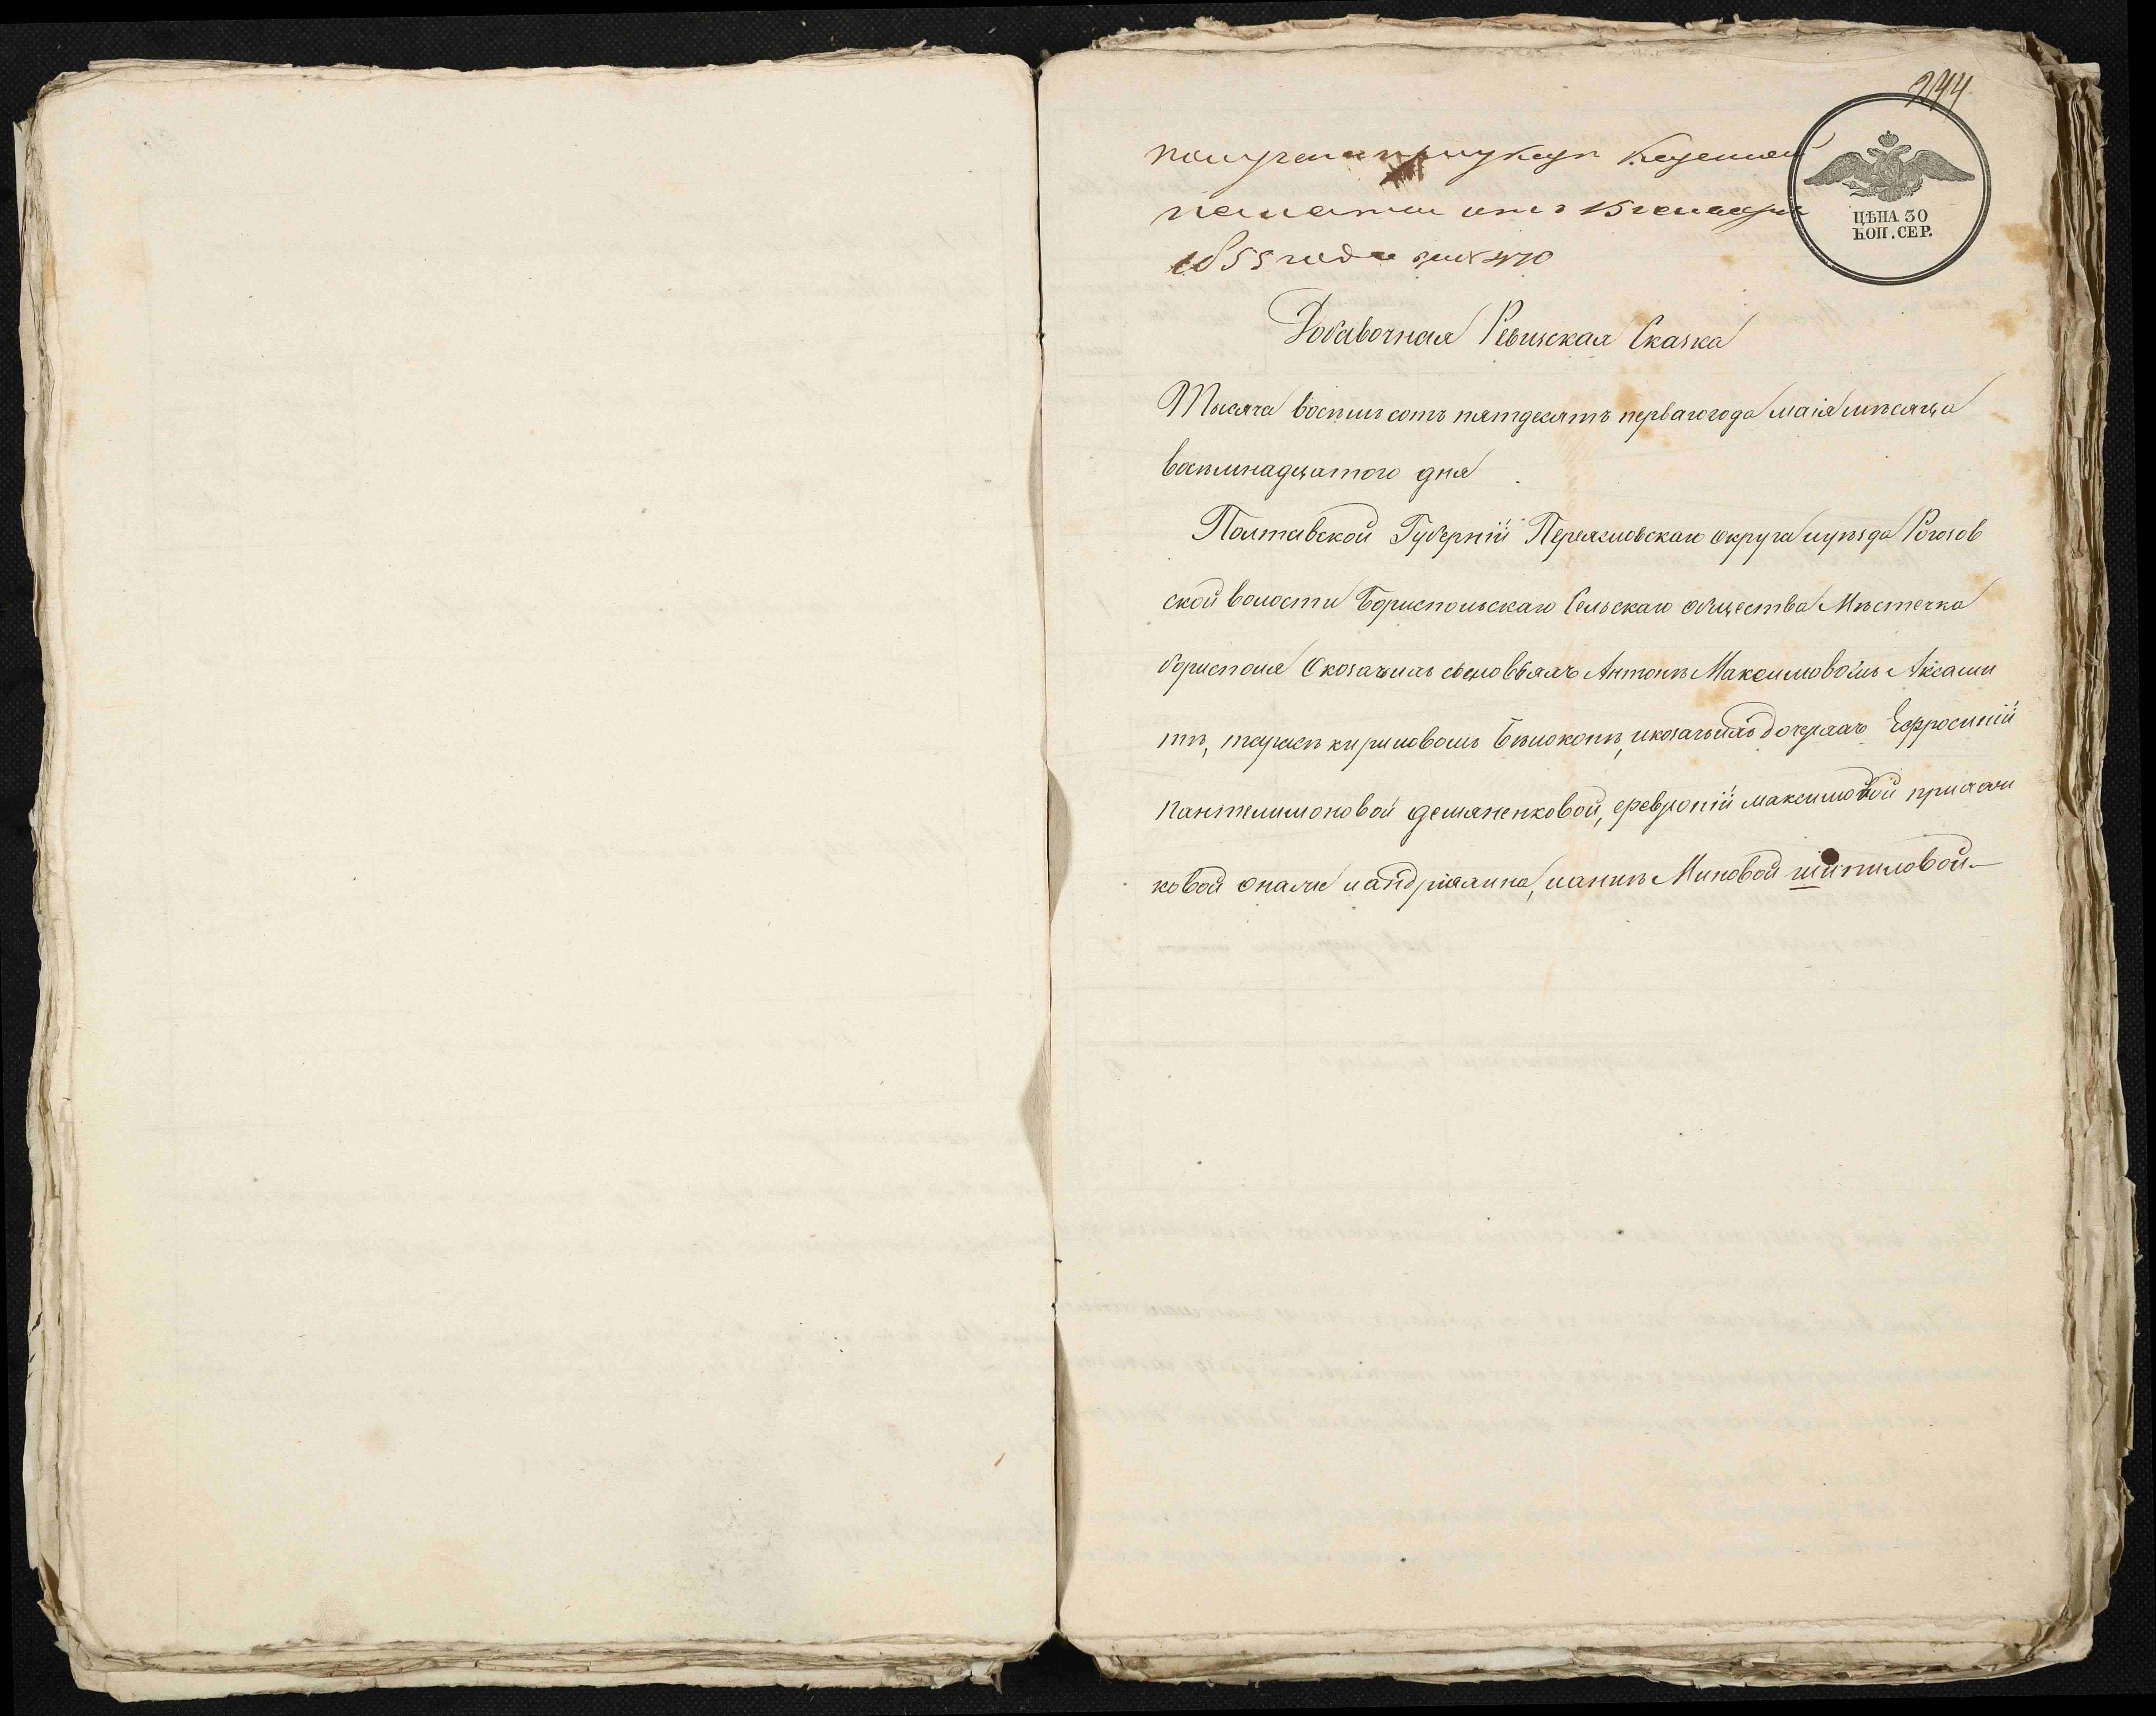 244
ЦѢНА 30
КОП. СЕР.
получена при указе Казенной
палаты отъ 15 генваря
1855 года за № 470
Добавочная Ревизская Сказка
Тысяча восемь сотъ пятдесятъ перваго года маія мѣсяца
восемнадцатого дня
Полтавской Губерніи Переясловскаго округа и уѣзда Рогозов
ской волости Бориспольскаго Сельскаго общества Мѣстечка
борисполя О козачьихъ сыновьяхъ Антонѣ Максимовомъ Аксами
тѣ, тарасѣ кириловомъ Бѣлоконѣ, и козачьихъ дочеряхъ Ефросиніи
Пантелимоновой демяненковой, февроніи максимовой
ковой и аннѣ Миновой шипиловой